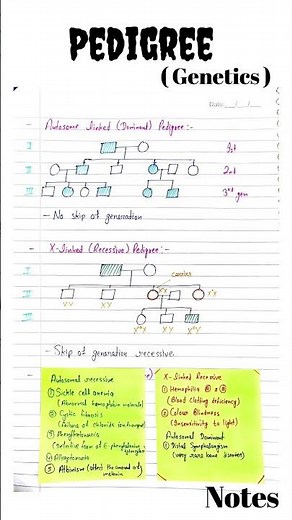 PEDIGREE
(Genetics)
Date
- Autosome linked (Dominant) Pedigree:-
I
1st
II
2nd
III
3rd gen
- No skip of generation
- X-linked (Recessive) Pedigree:-
I
carrier
II
XY
XY
III
XY
- Skip of generation recessive.
Autosomal recessive
① Sickle cell anemia
(Abnormal hemoglobin molecule)
② Cystic fibrosis
(Failure of chloride ion transport)
③ Phenylketonuria
④ Alkaptonuria
⑤ Albinism (affect the amount of
melanin
X-linked Recessive
① Hemophilia
(Blood clotting deficiency)
② Colour Blindness
(Insensitivity to light)
Autosomal Dominant
① Distal Symphalangism
(very rare bone disorder)
Notes